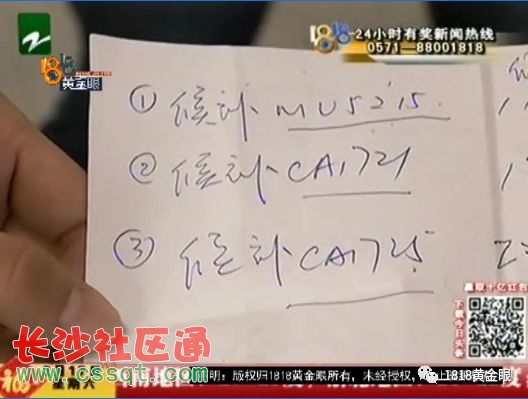 24小时有奖新闻热线
0571-88001818
1818
黄金眼
① 候补 MU5215.
② 候补 CA1721
③ 候补 CA1725
赢取十亿红包
下载今日头条
长沙社区通
www.cssqt.com
星期六
明：版权归1818黄金眼所有，未经授权，
1818黄金眼